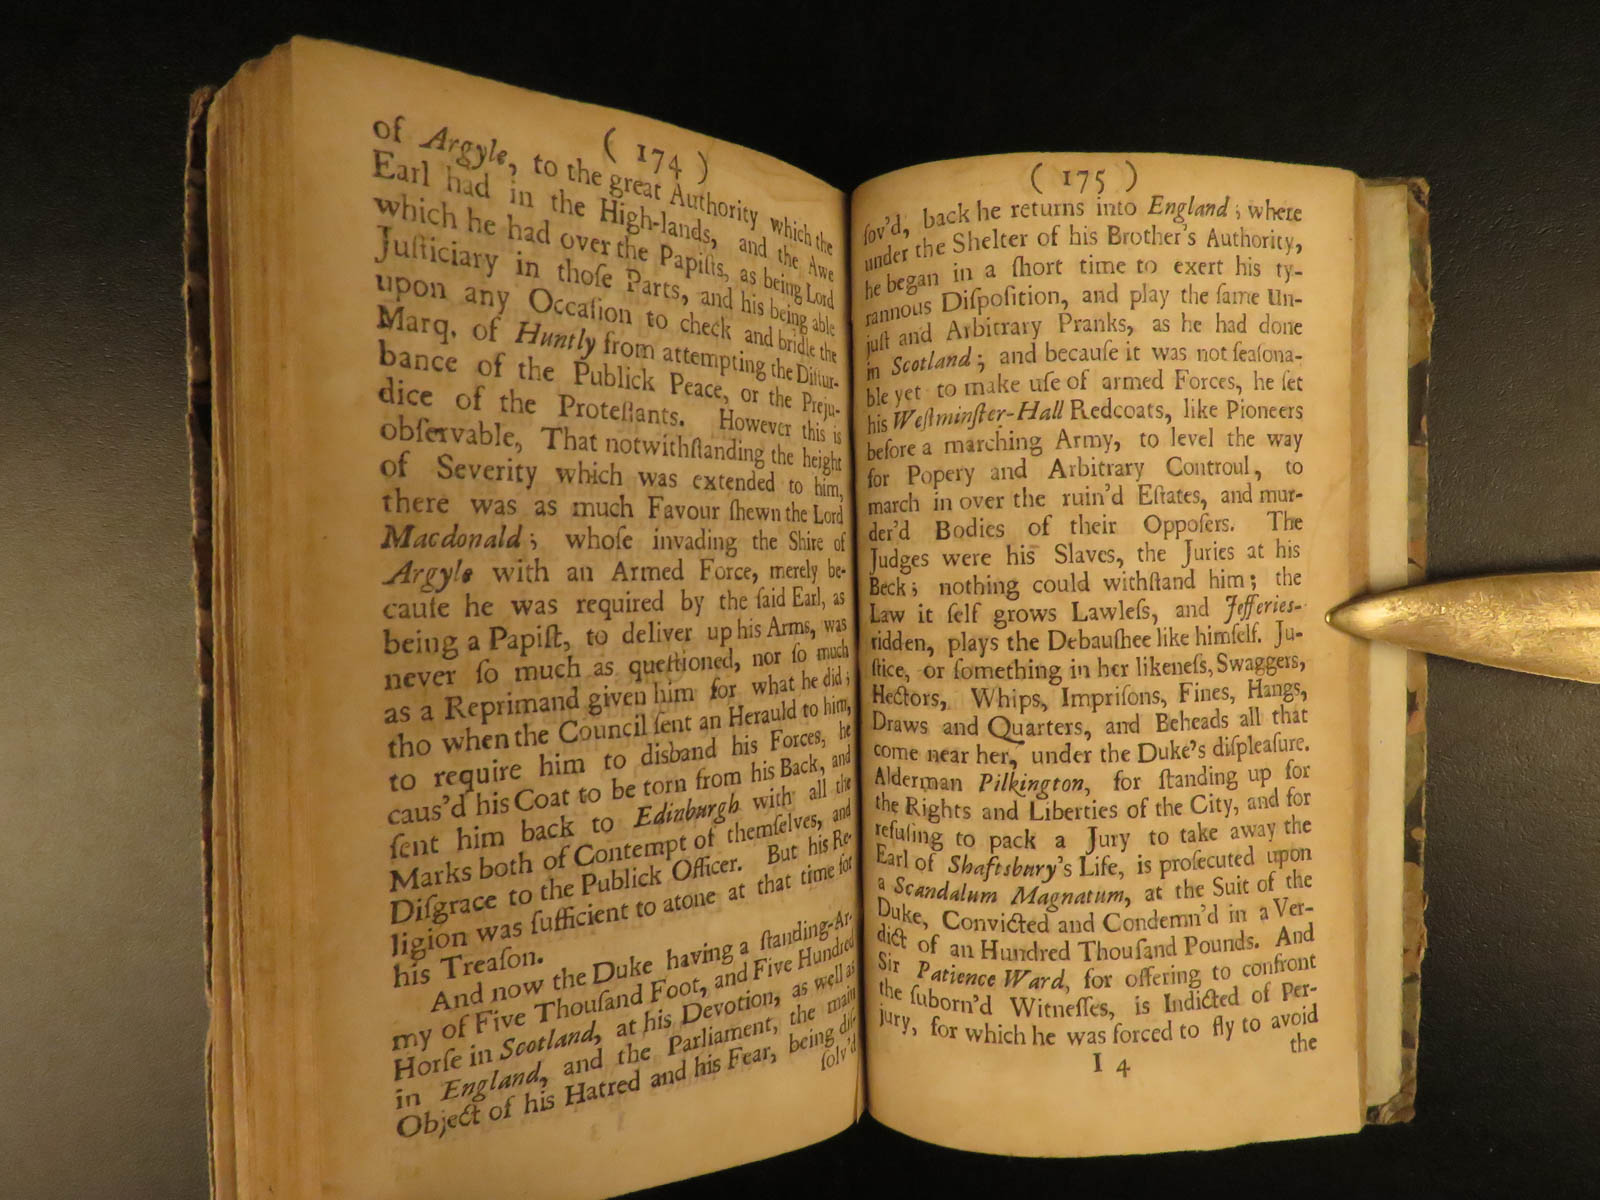 ( 174 )
of Argyle, to the great Authority which the
Earl had in the High-lands, and the Awe
which he had over the Papiſts, as being Lord
Juſticiary in thoſe Parts, and his being able
upon any Occaſion to check and bridle the
Marq. of Huntly from attempting the Diſtur-
bance of the Publick Peace, or the Preju-
dice of the Proteſtants. However this is
obſervable, That notwithſtanding the height
of Severity which was extended to him,
there was as much Favour ſhewn the Lord
Macdonald; whoſe invading the Shire of
Argyle with an Armed Force, merely be-
cauſe he was required by the ſaid Earl, as
being a Papiſt, to deliver up his Arms, was
never ſo much as queſtioned, nor ſo much
as a Reprimand given him for what he did;
tho when the Council ſent an Herauld to him,
to require him to disband his Forces, he
caus'd his Coat to be torn from his Back, and
ſent him back to Edinburgh with all the
Marks both of Contempt of themſelves, and
Diſgrace to the Publick Officer. But his Re-
ligion was ſufficient to atone at that time for
his Treaſon.
And now the Duke having a ſtanding-Ar-
my of Five Thouſand Foot, and Five Hundred
Horſe in Scotland, at his Devotion, as well as
in England, and the Parliament, the main
Object of his Hatred and his Fear, being diſ-
ſolv'd
( 175 )
ſov'd, back he returns into England; where
under the Shelter of his Brother's Authority,
he began in a ſhort time to exert his ty-
rannous Diſpoſition, and play the ſame Un-
juſt and Arbitrary Pranks, as he had done
in Scotland; and becauſe it was not ſeaſona-
ble yet to make uſe of armed Forces, he ſet
his Weſtminſter-Hall Redcoats, like Pioneers
before a marching Army, to level the way
for Popery and Arbitrary Controul, to
march in over the ruin'd Eſtates, and mur-
der'd Bodies of their Oppoſers. The
Judges were his Slaves, the Juries at his
Beck; nothing could withſtand him; the
Law it ſelf grows Lawleſs, and Jefferies-
ridden, plays the Debauſhee like himſelf. Ju-
ſtice, or ſomething in her likeneſs, Swaggers,
Hectors, Whips, Impriſons, Fines, Hangs,
Draws and Quarters, and Beheads all that
come near her, under the Duke's diſpleaſure.
Alderman Pilkington, for ſtanding up for
the Rights and Liberties of the City, and for
refuſing to pack a Jury to take away the
Earl of Shaftsbury's Life, is proſecuted upon
a Scandalum Magnatum, at the Suit of the
Duke, Convicted and Condemn'd in a Ver-
dict of an Hundred Thouſand Pounds. And
Sir Patience Ward, for offering to confront
the ſuborn'd Witneſſes, is Indicted of Per-
jury, for which he was forced to fly to avoid
I 4
the